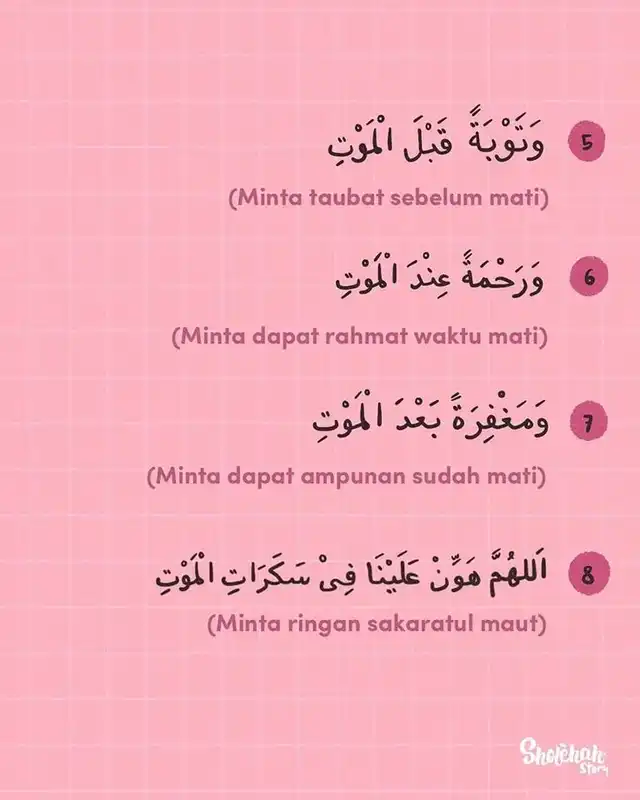 5 وَتَوْبَةً قَبْلَ الْمَوْتِ
(Minta taubat sebelum mati)
6 وَرَحْمَةً عِنْدَ الْمَوْتِ
(Minta dapat rahmat waktu mati)
7 وَمَغْفِرَةً بَعْدَ الْمَوْتِ
(Minta dapat ampunan sudah mati)
8 اَللهُمَّ هَوِّنْ عَلَيْنَا فِىْ سَكَرَاتِ الْمَوْتِ
(Minta ringan sakaratul maut)
Sholehah
Story